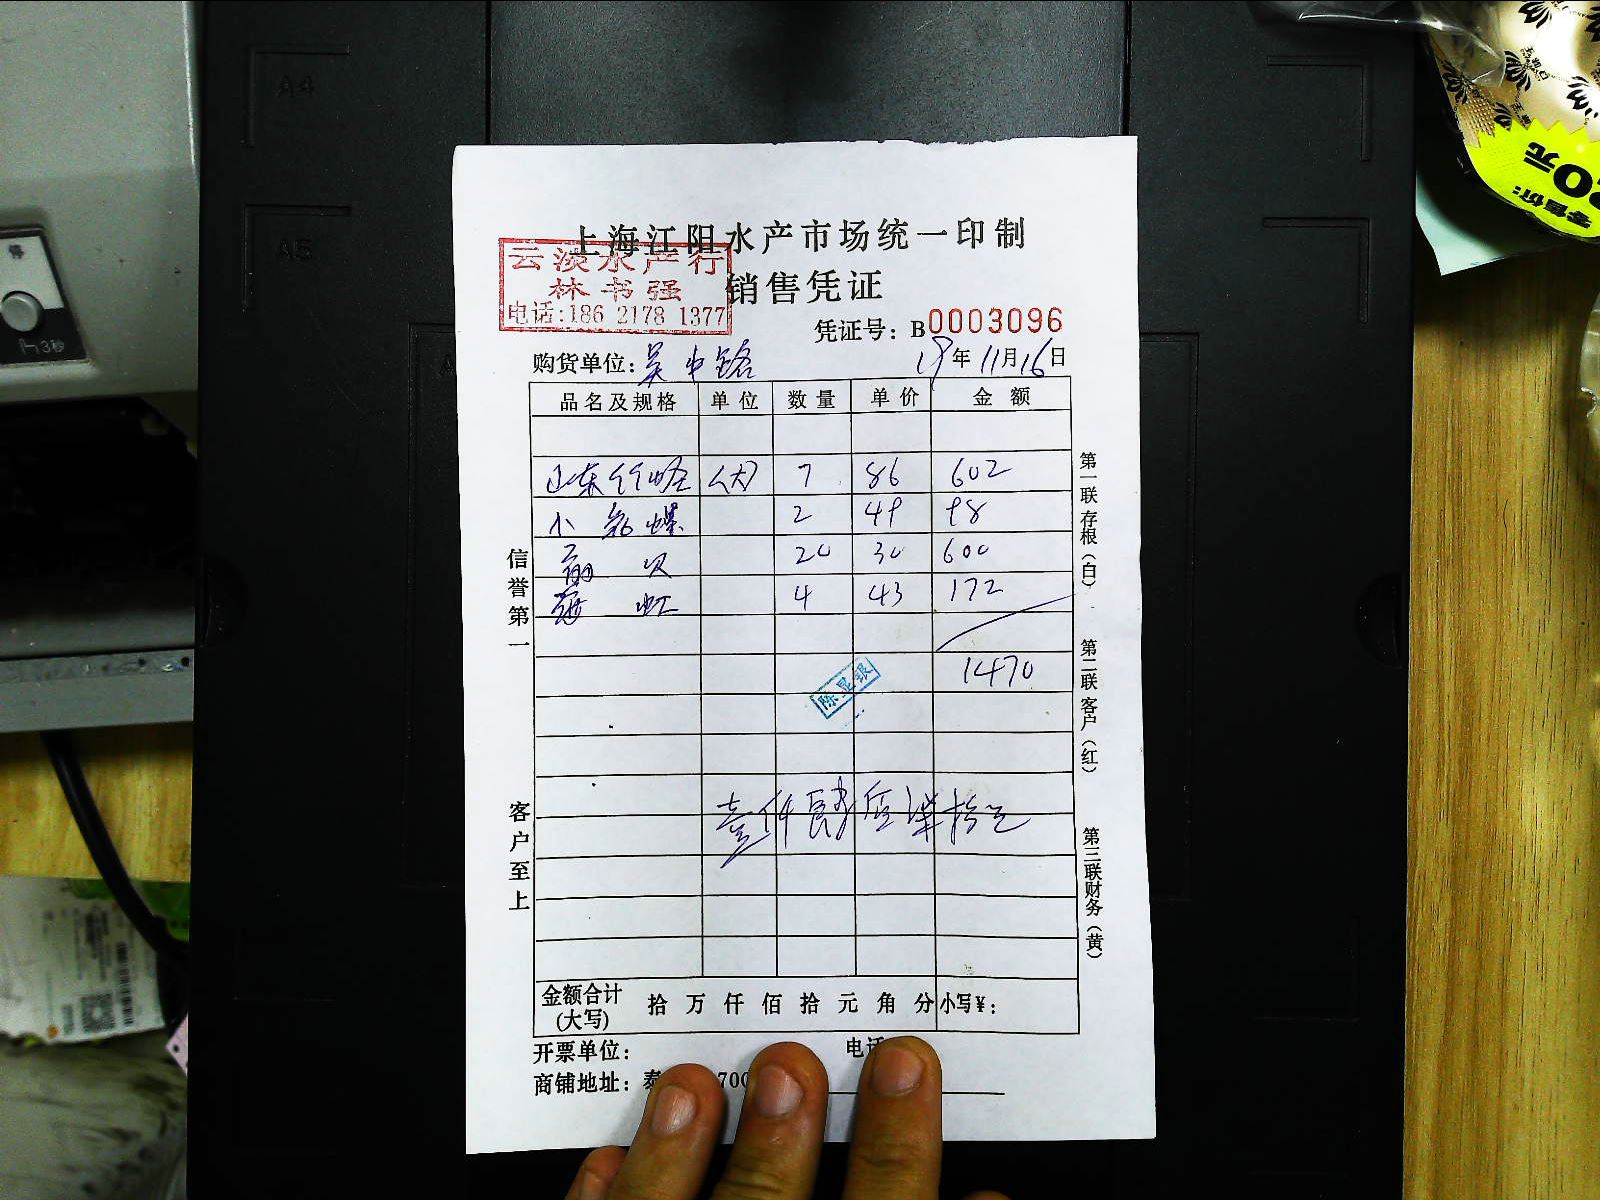 上海江阳水产市场统一印制
云淡水产行
林书强
电话:186 2178 1377
销售凭证
凭证号: B0003096
购货单位: 吴中路
19年11月16日
品名及规格 单位 数量 单价 金额
山东竹蛏 (大) 7 86 602
小 螺 2 49 98
扇贝 20 30 600
4 43 172
1470
陈显银
壹仟肆佰柒拾元
信誉第一
客户至上
第一联 存根(白)
第二联 客户(红)
第三联 财务(黄)
金额合计 拾 万 仟 佰 拾 元 角 分 小写¥:
(大写)
开票单位: 电话
商铺地址: 泰 700
A4
A5
3秒
零售价:
0元